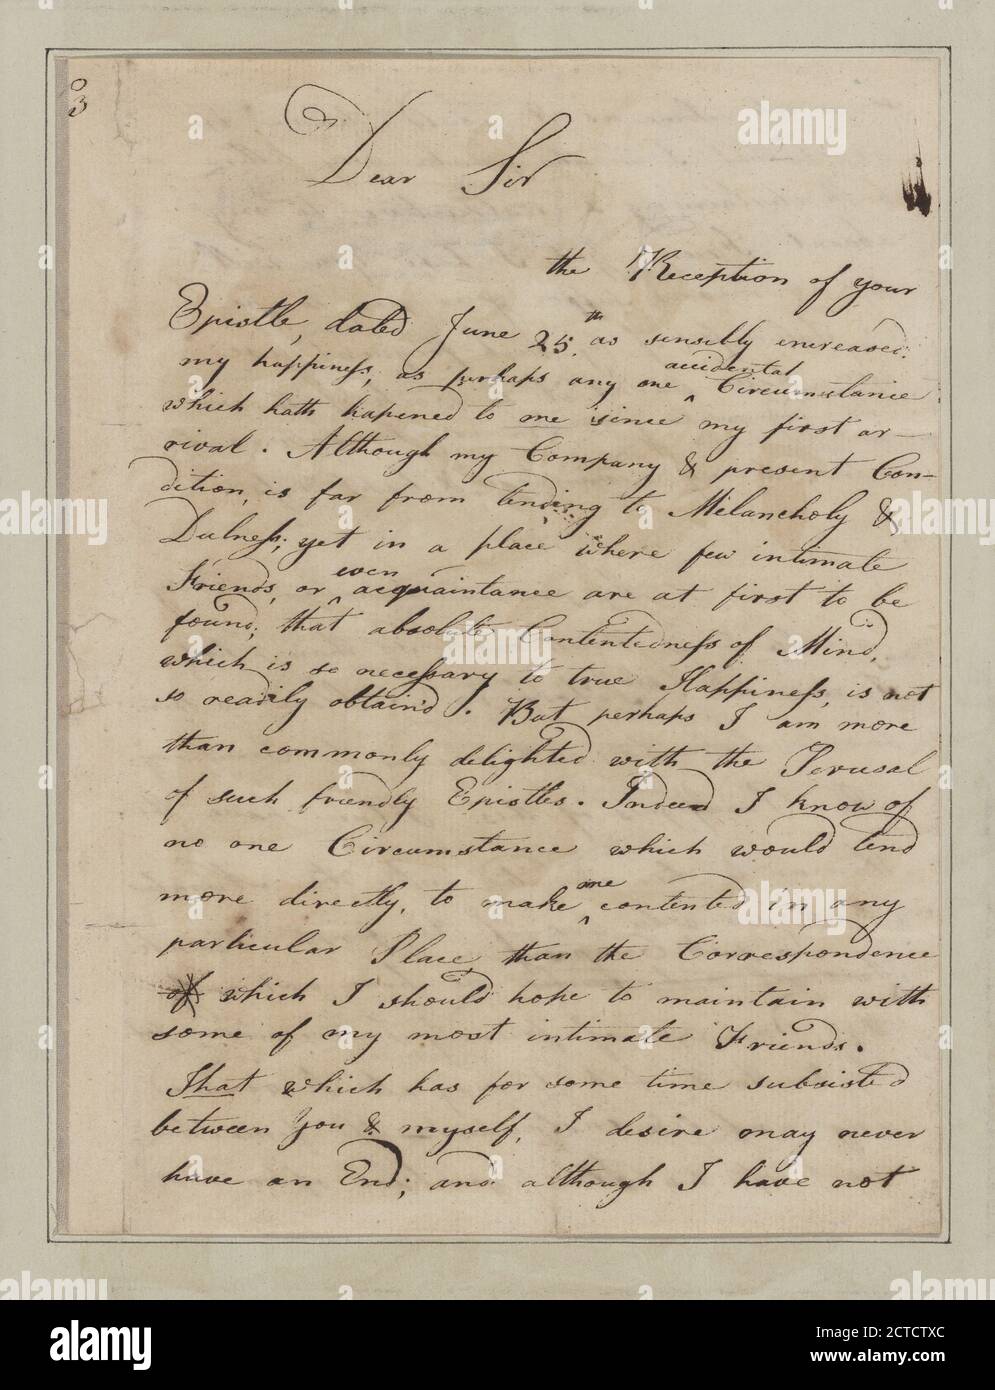 3
Dear Sir
the Reception of your
Epistle, dated June 25.th as sensibly increased
my happiness, as perhaps any one ^accidental Circumstance
which hath hapened to me since my first ar-
rival. Although my Company & present Con-
dition, is far from tending to Melancholy &
Dulness; yet in a place where few intimate
Friends, or ^even acquaintance are at first to be
found; that absolute Contentedness of Mind,
which is so necessary to true Happiness, is not
so readily obtain'd. But perhaps I am more
than commonly delighted with the Perusal
of such friendly Epistles. Indeed I know of
no one Circumstance which would tend
more directly, to make ^me contented in any
particular Place than the Correspondence
of which I should hope to maintain with
some of my most intimate Friends.
That which has for some time subsisted
between You & myself, I desire may never
have an End; and although I have not
alamy
Image ID: 2CTCTXC
www.alamy.com